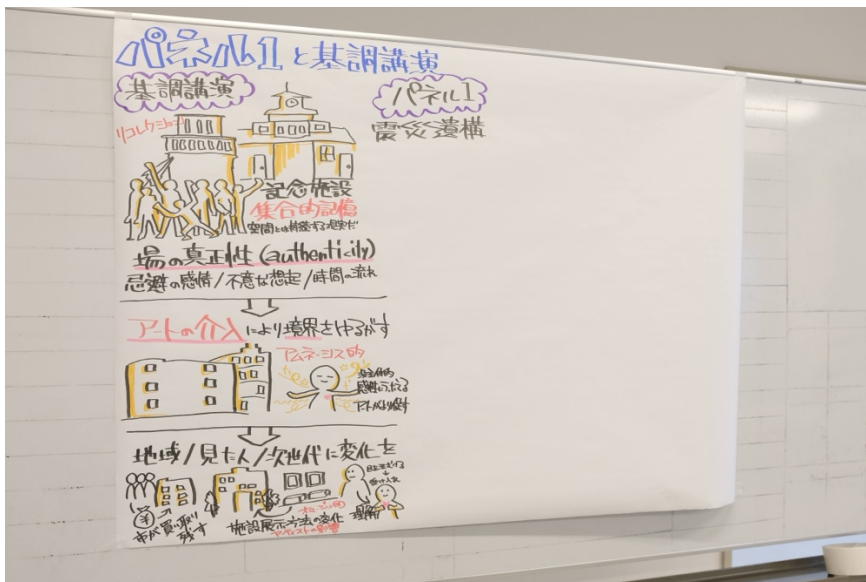 パネル1と基調講演
基調講演
リコレクション
記念施設
集合的記憶
空間とは持続する現実だ
場の真正性(authenticity)
忌避の感情/不意な想起/時間の流れ
アートの介入により境界をゆるがす
アムネーシス的
地域/見た人/次世代に変化を
市が買い取り
残す
施設展示方法の変化
アーティストの影響
理解
パネル1
震災遺構